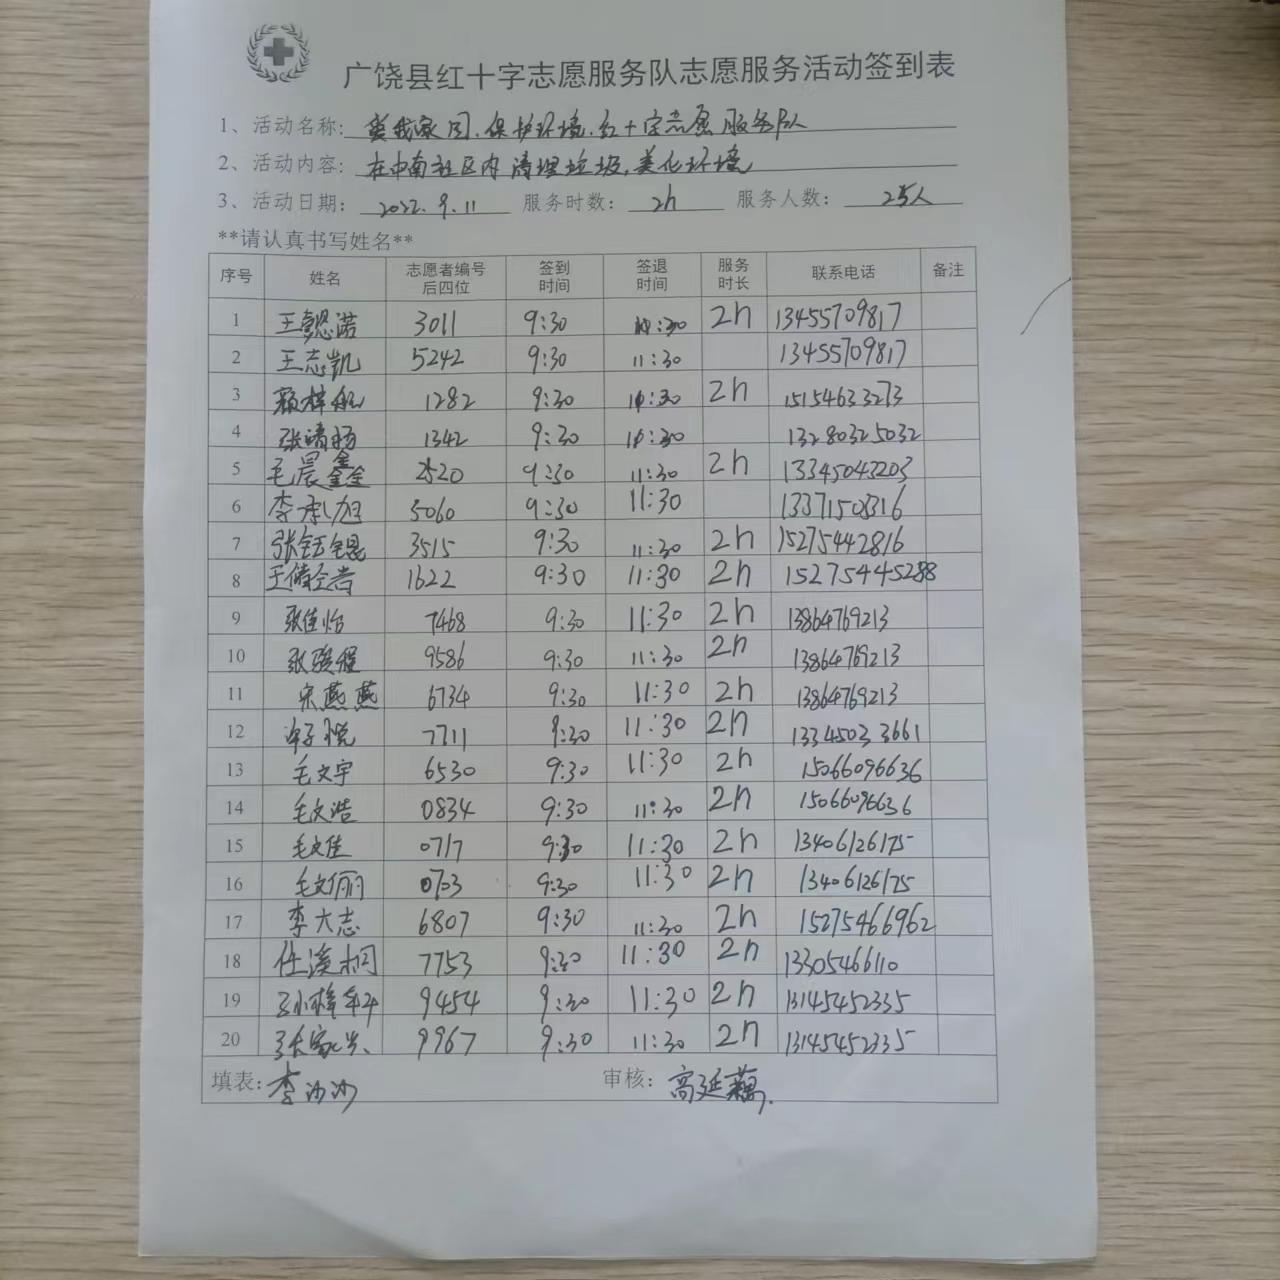 广饶县红十字志愿服务队志愿服务活动签到表
1、活动名称: 爱我家园.保护环境.红十字志愿服务队
2、活动内容: 在中南社区内清理垃圾,美化环境
3、活动日期: 2022.9.11 服务时数: 2h 服务人数: 25人
**请认真书写姓名**
序号 姓名 志愿者编号后四位 签到时间 签退时间 服务时长 联系电话 备注
1 王懿诺 3011 9:30 :30 2h 13455709817
2 王志凯 5242 9:30 11:30 13455709817
3 颜梓 1282 9:30 :30 2h 15154633273
4 张晴扬 1342 9:30 :30 13280325032
5 毛晨鑫 2520 9:30 11:30 2h 13345043203
6 李承旭 5060 9:30 11:30 13371508316
7 张钰锟 3515 9:30 11:30 2h 15275442816
8 王 1622 9:30 11:30 2h 15275445288
9 张佳怡 7468 9:30 11:30 2h 13864769213
10 张骏程 9586 9:30 11:30 2h 13864769213
11 宋燕燕 6734 9:30 11:30 2h 13864769213
12 悦 7711 9:30 11:30 2h 13345033661
13 毛文宇 6530 9:30 11:30 2h 15066096636
14 毛文浩 0834 9:30 11:30 2h 15066096636
15 毛文佳 0717 9:30 11:30 2h 13406126175
16 毛文俪 0703 9:30 11:30 2h 13406126175
17 李大志 6807 9:30 11:30 2h 15275466962
18 任溪桐 7753 9:30 11:30 2h 13305466110
19 孙梓轩 9454 9:30 11:30 2h 13145452335
20 张家 9967 9:30 11:30 2h 13145452335
填表: 李沙沙 审核: 高延藕